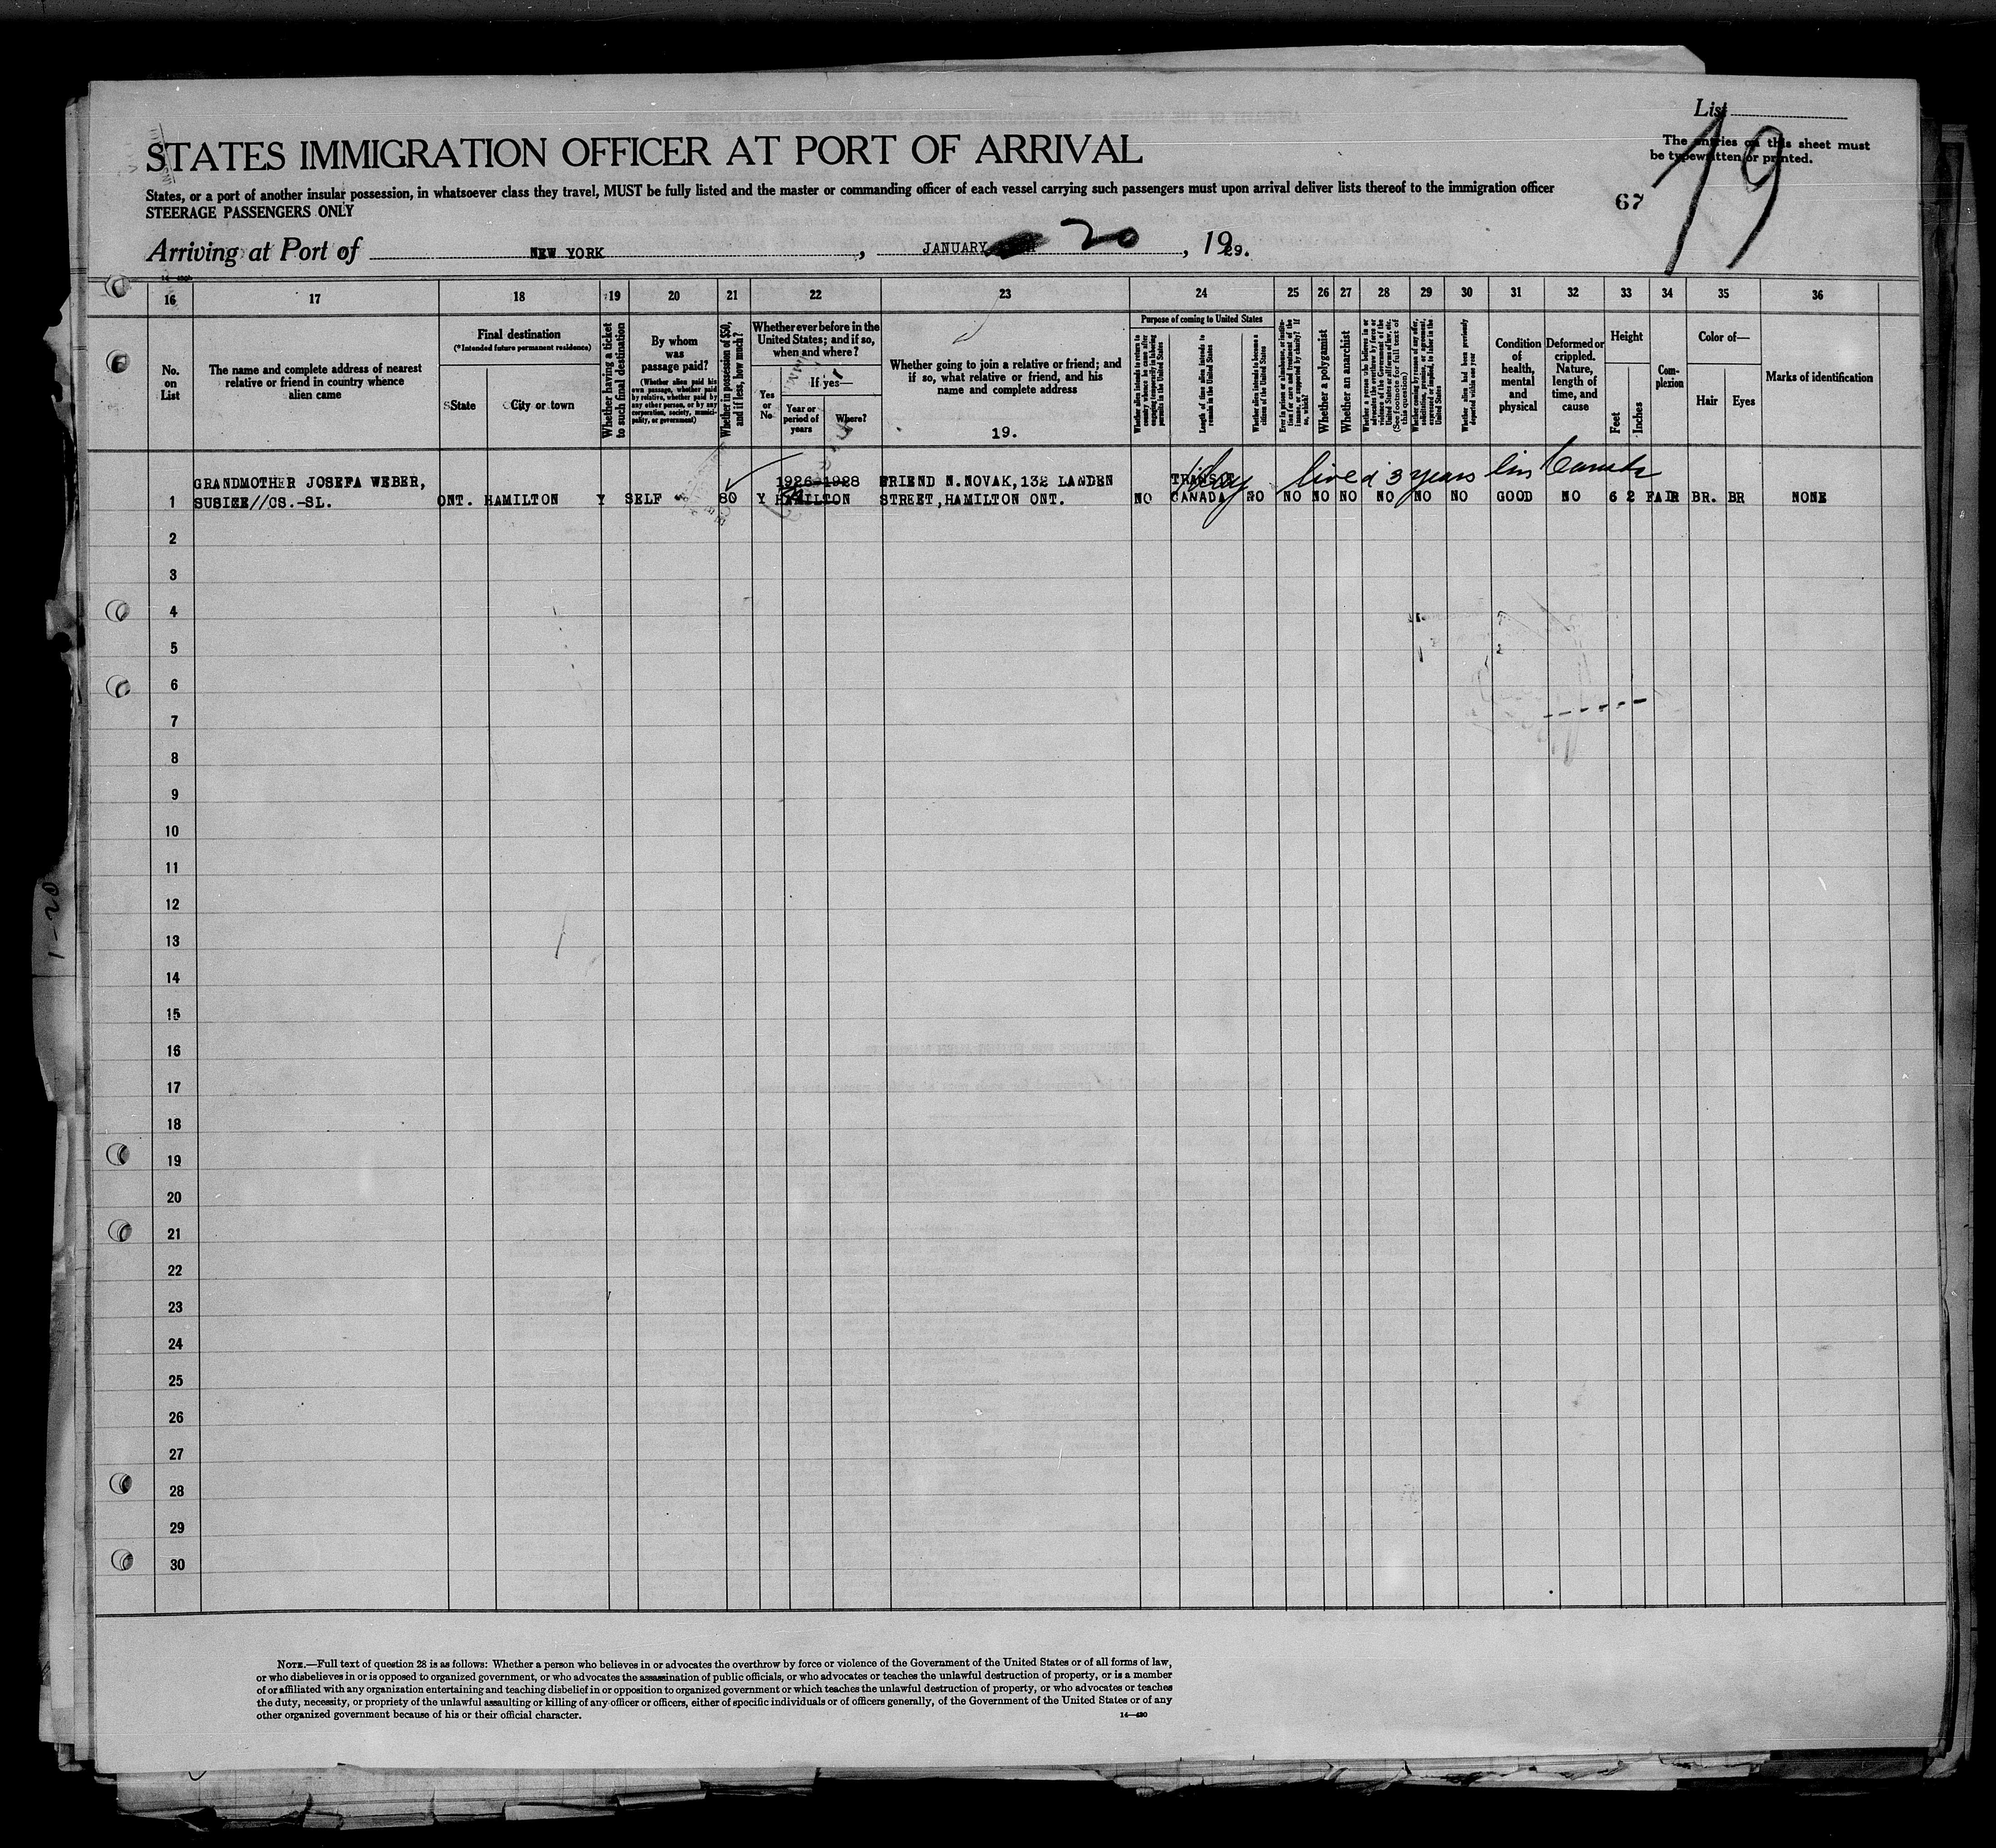 List
The entries on this sheet must
be typewritten or printed.
19
67
STATES IMMIGRATION OFFICER AT PORT OF ARRIVAL
States, or a port of another insular possession, in whatsoever class they travel, MUST be fully listed and the master or commanding officer of each vessel carrying such passengers must upon arrival deliver lists thereof to the immigration officer
STEERAGE PASSENGERS ONLY
Arriving at Port of NEW YORK, JANUARY 20, 1929.
16 17 18 19 20 21 22 23 24 25 26 27 28 29 30 31 32 33 34 35 36
No.
on
List
The name and complete address of nearest
relative or friend in country whence
alien came
Final destination
(*Intended future permanent residence)
State
City or town
Whether having a ticket
to such final destination
By whom
was
passage paid?
(Whether alien paid his
own passage, whether paid
by relative, whether paid by
any other person, or by any
corporation, society, munici-
pality, or government)
Whether in possession of $50,
and if less, how much?
Whether ever before in the
United States; and if so,
when and where?
Yes
or
No
If yes—
Year or
period of
years
Where?
Whether going to join a relative or friend; and
if so, what relative or friend, and his
name and complete address
19.
Purpose of coming to United States
Length of time alien intends to
remain in the United States
Whether alien intends to become a
citizen of the United States
Whether a polygamist
Whether an anarchist
(See footnote for full text of
this question)
Whether alien had been previously
deported within one year
Condition
of
health,
mental
and
physical
Deformed or
crippled.
Nature,
length of
time, and
cause
Height
Feet
Inches
Com-
plexion
Color of—
Hair
Eyes
Marks of identification
lived 3 years in Canada
GRANDMOTHER JOSEFA WEBER, 1926-1928 FRIEND N.NOVAK,132 LANDEN TRANSIT
1 SUSIZE//CS.-SL. ONT. HAMILTON Y SELF 80 Y HAMILTON STREET,HAMILTON ONT. NO CANADA NO NO NO NO NO NO NO GOOD NO 6 2 FAIR BR. BR NONE
2
3
4
5
6
7
8
9
10
11
12
13
14
15
16
17
18
19
20
21
22
23
24
25
26
27
28
29
30
1-20
NOTE.—Full text of question 28 is as follows: Whether a person who believes in or advocates the overthrow by force or violence of the Government of the United States or of all forms of law,
or who disbelieves in or is opposed to organized government, or who advocates the assassination of public officials, or who advocates or teaches the unlawful destruction of property, or is a member
of or affiliated with any organization entertaining and teaching disbelief in or opposition to organized government or which teaches the unlawful destruction of property, or who advocates or teaches
the duty, necessity, or propriety of the unlawful assaulting or killing of any officer or officers, either of specific individuals or of officers generally, of the Government of the United States or of any
other organized government because of his or their official character.
14—430